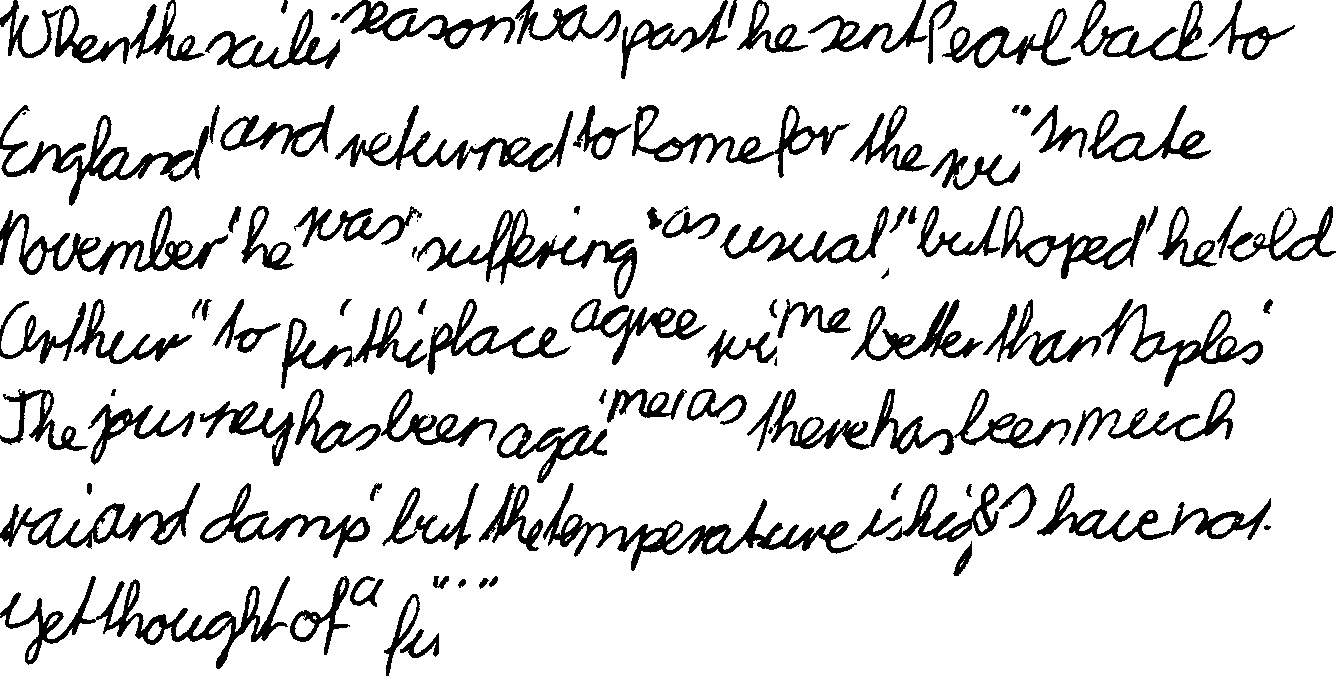 When the season was past' he sent Pearl back to
England' and returned to Rome for the " In late
November' he was" suffering "as usual," but hoped' he told
Arthur" to place agree me better than Naples'
The journey has been me as there has been much
and damp' but the temperature is & I have not
yet thought of a "."